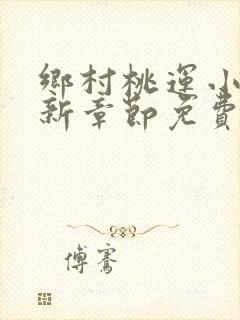 鄉村桃運小
新章節免費
傅騫